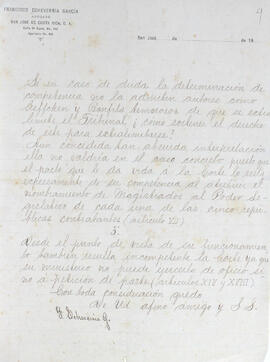 FRANCISCO ECHEVERRIA GARCIA
ABOGADO
SAN JOSE DE COSTA RICA, C. A.
San José, de de 19
Si en caso de duda la determinación de
competencia no la admiten autores como
Geffcken y Bonfils temerosos de que se extra
limite el Tribunal ¿como sostener el derecho
de este para extralimitarse?
Aun concedida tan absurda interpretación
ella no valdría en el caso concreto puesto que
el pacto que le da vida a la Corte lo resta
expresamente de su competencia al atribuir el
nombramiento de Magistrados al Poder Le-
gislativo de cada una de las cinco repú
blicas contratantes (artículo VII)
3º
Desde el punto de vista de su funcionamien
to también resulta incompetente la Corte ya que
su ministerio no puede ejercerlo de oficio si
no a petición de parte (artículos XIV y XVIII)
Con toda consideración quedo
de Ud afmo amigo y S. S.
F. Echeverría G.